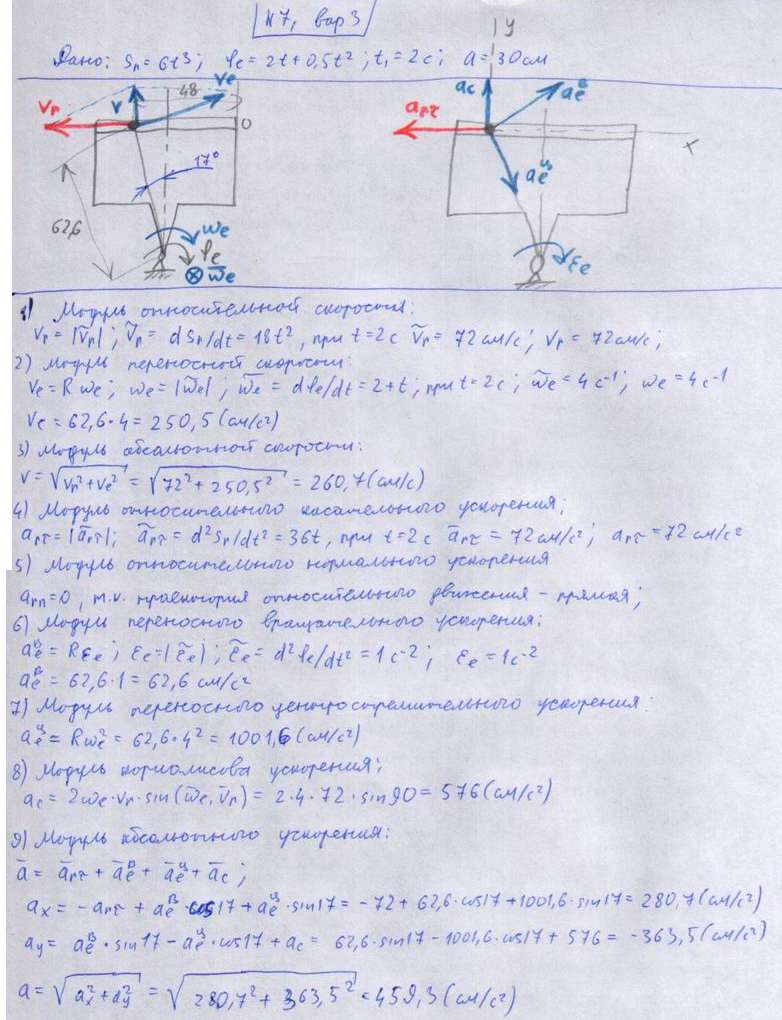 N7, вар 3
Дано: Sr = 6t³; φe = 2t + 0,5t²; t₁ = 2c; a = 30 см
y
Vr
V
Ve
48
O
17°
62,6
ωe
φe
ω̄e
ac
aeᴮ
arτ
x
aeᶣ
εe
1) Модуль относительной скорости:
Vr = |Ṽr|; Ṽr = dSr/dt = 18t², при t=2c Ṽr = 72 см/с; Vr = 72 см/с;
2) Модуль переносной скорости:
Ve = Rωe; ωe = |ω̃e|; ω̃e = dφe/dt = 2+t; при t=2c; ω̃e = 4 c⁻¹; ωe = 4 c⁻¹
Ve = 62,6·4 = 250,5 (см/с²)
3) Модуль абсолютной скорости:
V = √(Vr² + Ve²) = √(72² + 250,5²) = 260,7 (см/с)
4) Модуль относительного касательного ускорения:
arτ = |ãrτ|; ãrτ = d²Sr/dt² = 36t, при t=2c ãrτ = 72 см/с²; arτ = 72 см/с²
5) Модуль относительного нормального ускорения
arn = 0, т.к. траектория относительного движения - прямая;
6) Модуль переносного вращательного ускорения:
aeᴮ = Rεe; εe = |ε̃e|; ε̃e = d²φe/dt² = 1 c⁻²; εe = 1 c⁻²
aeᴮ = 62,6·1 = 62,6 см/с²
7) Модуль переносного центростремительного ускорения:
aeᶣ = Rωe² = 62,6·4² = 1001,6 (см/с²)
8) Модуль кориолисова ускорения:
ac = 2ωe·Vr·sin(ω̄e, V̄r) = 2·4·72·sin90 = 576 (см/с²)
9) Модуль абсолютного ускорения:
ā = ārτ + āeᴮ + āeᶣ + āc;
ax = -arτ + aeᴮ·cos17 + aeᶣ·sin17 = -72 + 62,6·cos17 + 1001,6·sin17 = 280,7 (см/с²)
ay = aeᴮ·sin17 - aeᶣ·cos17 + ac = 62,6·sin17 - 1001,6·cos17 + 576 = -363,5 (см/с²)
a = √(ax² + ay²) = √(280,7² + 363,5²) = 459,3 (см/с²)